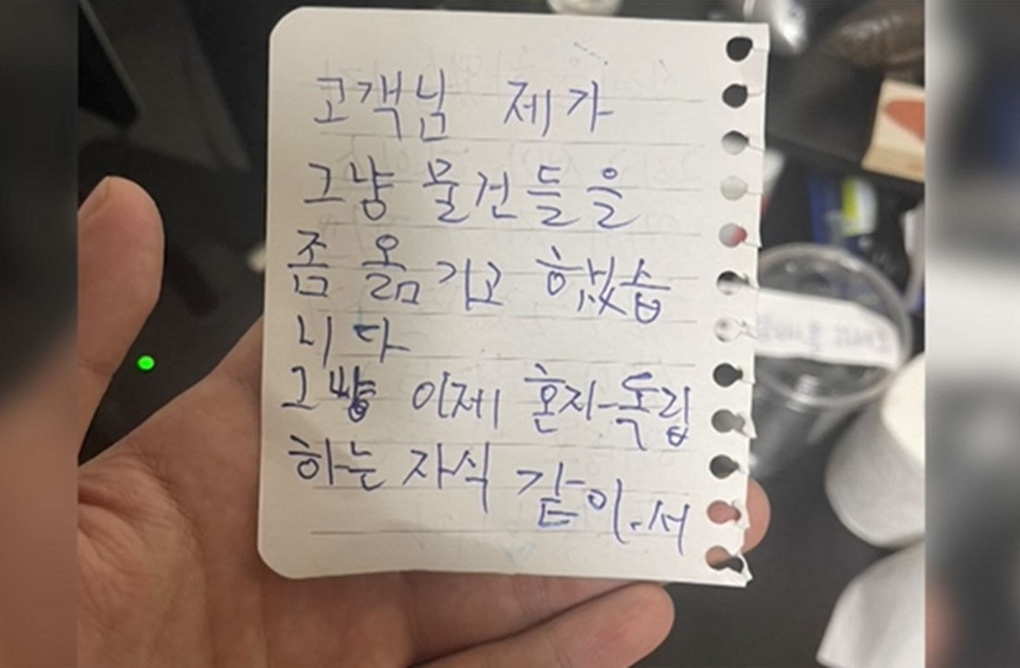 고객님 제가
그냥 물건들을
좀 옮기고 했습
니다
그냥 이제 혼자 독립
하는 자식 같아서